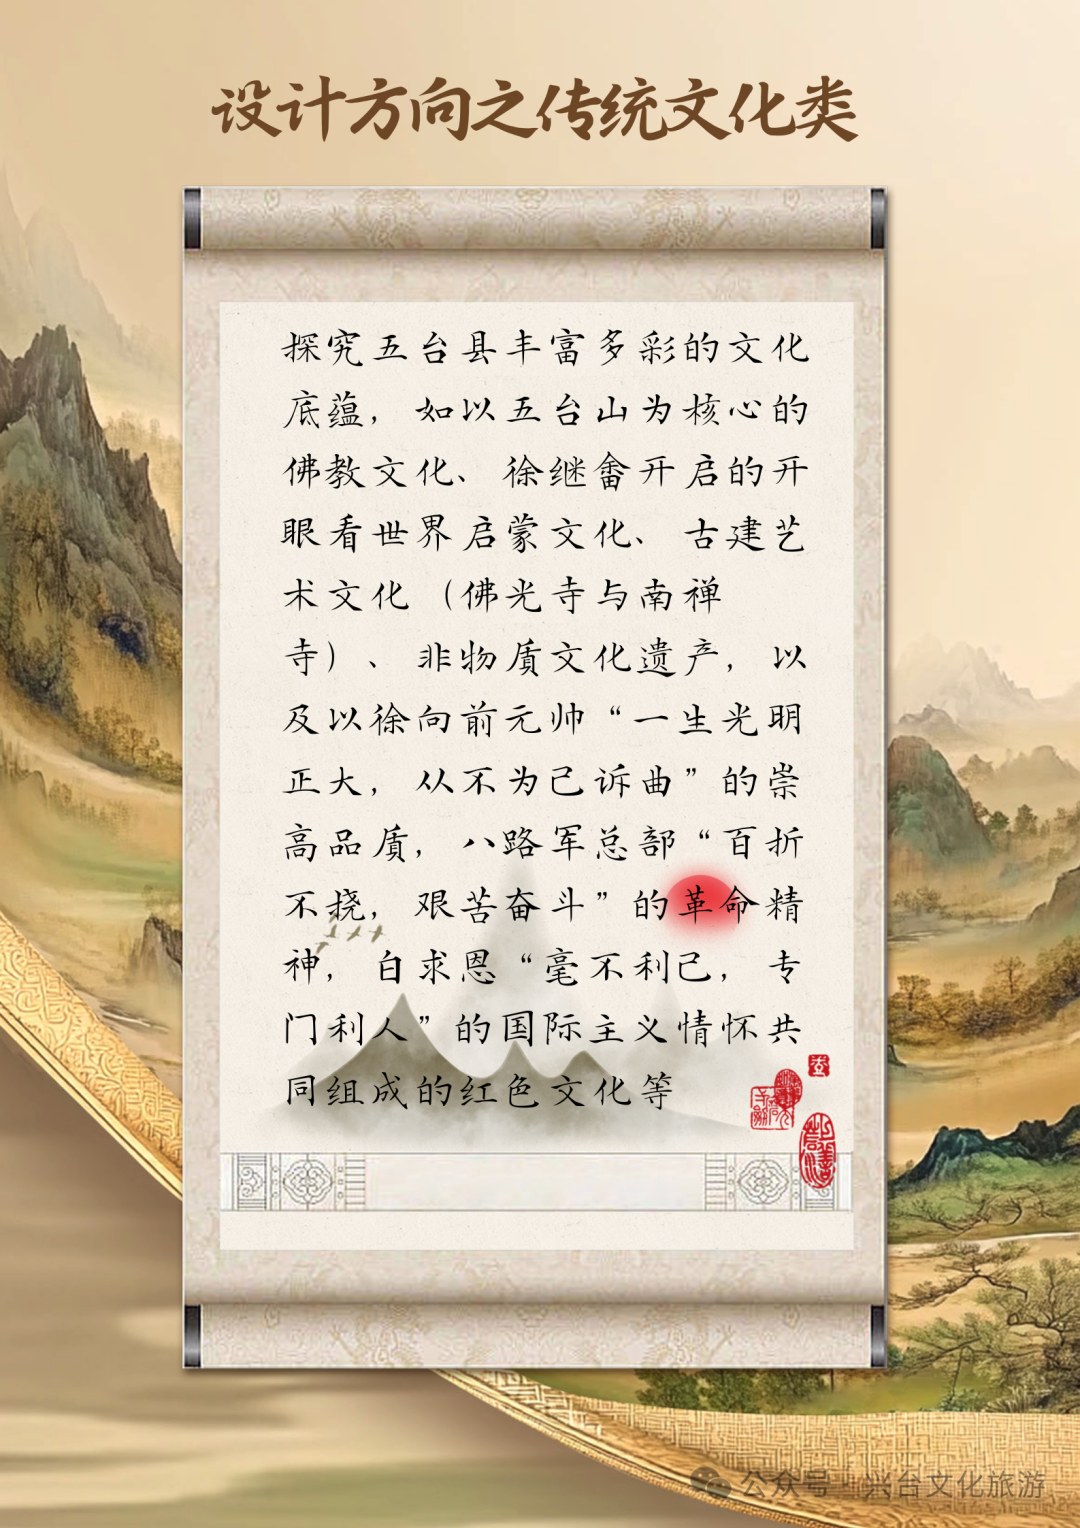 设计方向之传统文化类
探究五台县丰富多彩的文化
底蕴，如以五台山为核心的
佛教文化、徐继畬开启的开
眼看世界启蒙文化、古建艺
术文化（佛光寺与南禅
寺）、非物质文化遗产，以
及以徐向前元帅“一生光明
正大，从不为己诉曲”的崇
高品质，八路军总部“百折
不挠，艰苦奋斗”的革命精
神，白求恩“毫不利己，专
门利人”的国际主义情怀共
同组成的红色文化等
公众号·兴台文化旅游